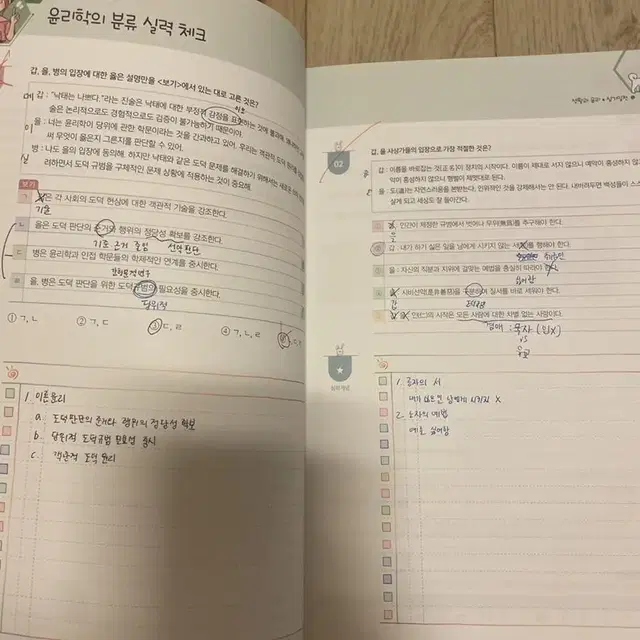 윤리학의 분류 실력 체크
갑, 을, 병의 입장에 대한 옳은 설명만을 <보기>에서 있는 대로 고른 것은?
메 갑 : "낙태는 나쁘다."라는 진술은 낙태에 대한 부정적 감정을 표현하는 것에 불과해,
술은 논리적으로도 경험적으로도 검증이 불가능하기 때문이야.
이 을 : 너는 윤리학이 당위에 관한 학문이라는 것을 간과하고 있어. 우리는 객관적 도덕
써 무엇이 옳은지 그른지를 판단할 수 있어.
실 병 : 나도 을의 입장에 동의해. 하지만 낙태와 같은 도덕 문제를 해결하기 위해서는
려하면서 도덕 규범을 구체적인 문제 상황에 적용하는 것이 중요해.
보기
ㄱ 은 각 사회의 도덕 현상에 대한 객관적 기술을 강조한다.
기술
ㄴ 을은 도덕 판단의 근거와 행위의 정당성 확보를 강조한다.
ㄷ 병은 윤리학과 인접 학문들의 학제적인 연계를 중시한다.
ㄹ 을, 병은 도덕 판단을 위한 도덕 규범의 필요성을 중시한다.
당위적
① ㄱ, ㄴ ② ㄱ, ㄷ ③ ㄷ, ㄹ ④ ㄱ, ㄴ, ㄹ
1. 이론윤리
a. 도덕판단의 근거와 행위의 정당성 확보
b. 당위적 도덕규범 필요성 중시
c. 객관적 도덕 윤리
02
갑, 을 사상가들의 입장으로 가장 적절한 것은?
갑 : 이름을 바로잡는 것(正名)이 정치의 시작이다. 이름이 제대로 서지 않으니 예악이 흥성하지 않
악이 흥성하지 않으니 형벌이 제멋대로 된다.
을 : 도(道)는 자연스러움을 본받는다. 인위적인 것을 강제해서는 안 된다. 내버려두면 백성들이 스스
살게 되고 세상도 잘 돌아간다.
인간이 제정한 규범에서 벗어나 무위(無爲)를 추구해야 한다.
갑 : 내가 하기 싫은 일을 남에게 시키지 않는 서 를 행해야 한다.
을 : 자신의 직분과 지위에 걸맞는 예법을 충실히 따라야
싫어함
시비선악(是非善惡)을 구분하여 질서를 바로 세워야 한다.
인(仁)의 시작은 모든 사람에 대한 차별 없는 사랑이다.
겸애 : 묵자 (인X)
vs
유교
1. 공자의 서
내가 싫으면 남에게 시키지 X
2. 노자의 예법
예로 싫어함